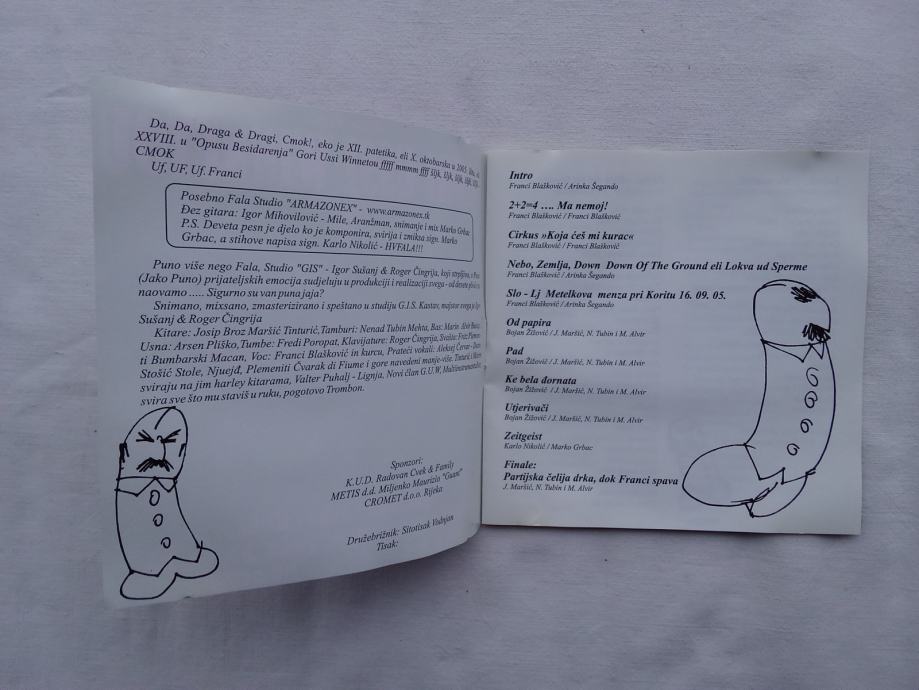 Da, Da, Draga & Dragi, Cmok!, eko je XII. patetika, eli X. oktobarska u 2005. litu, ali
XXVIII. u "Opusu Besidarenja" Gori Ussi Winnetou fffff mmmm ffff šljk, šljk, šljk, šljk, šljk...
CMOK
Uf, UF, Uf. Franci
Posebno Fala Studio "ARMAZONEX" - www.armazonex.tk
Đez gitara: Igor Mihovilović - Mile, Aranžman, snimanje i mix Marko Grbac
P.S. Deveta pesn je djelo ko je komponira, svirija i zmiksa sign. Marko
Grbac, a stihove napisa sign. Karlo Nikolić - HVFALA!!!
Puno više nego Fala, Studio "GIS" - Igor Sušanj & Roger Čingrija, koji strpljivo, o Puno
(Jako Puno) prijateljskih emocija sudjeluju u produkciji i realizaciji svega - od devete
naovamo ..... Sigurno su van puna jaja?
Snimano, mixsano, zmasterizirano i spеštano u studiju G.I.S. Kastav, majstor svega je Igor
Sušanj & Roger Čingrija
Kitare: Josip Broz Maršić Tinturić, Tamburi: Nenad Tubin Mehta, Bas: Marin Alvir
Usna: Arsen Pliško, Tumbe: Fredi Poropat, Klavijature: Roger Čingrija, Svašta: Fritz
ti Bumbarski Macan, Voc: Franci Blašković in kurcu, Prateći vokali: Aleksej Červar -
Stošić Stole, Njuejđ, Plemeniti Čvarak di Fiume i gore navedeni manje-više. Tinturić i
sviraju na jim harley kitarama, Valter Puhalj - Lignja, Novi član G.U.W, Multiinstrumentalist,
svira sve što mu staviš u ruku, pogotovo Trombon.
Sponzori:
K.U.D. Radovan Cvek & Family
METIS d.d. Miljenko Maurizio "Guant"
CROMET d.o.o. Rijeka
Družebrižnik: Sitotisak Vodnjan
Tisak:
Intro
Franci Blašković / Arinka Šegando
2+2=4 .... Ma nemoj!
Franci Blašković / Franci Blašković
Cirkus »Koja ćeš mi kurac«
Franci Blašković / Franci Blašković
Nebo, Zemlja, Down Down Of The Ground eli Lokva ud Sperme
Franci Blašković / Arinka Šegando
Slo - Lj Metelkova menza pri Koritu 16. 09. 05.
Franci Blašković / Arinka Šegando
Od papira
Bojan Žižović / J. Maršić, N. Tubin i M. Alvir
Pad
Bojan Žižović / J. Maršić, N. Tubin i M. Alvir
Ke bela dornata
Bojan Žižović / J. Maršić, N. Tubin i M. Alvir
Utjerivači
Bojan Žižović / J. Maršić, N. Tubin i M. Alvir
Zeitgeist
Karlo Nikolić / Marko Grbac
Finale:
Partijska čelija drka, dok Franci spava
J. Maršić, N. Tubin i M. Alvir